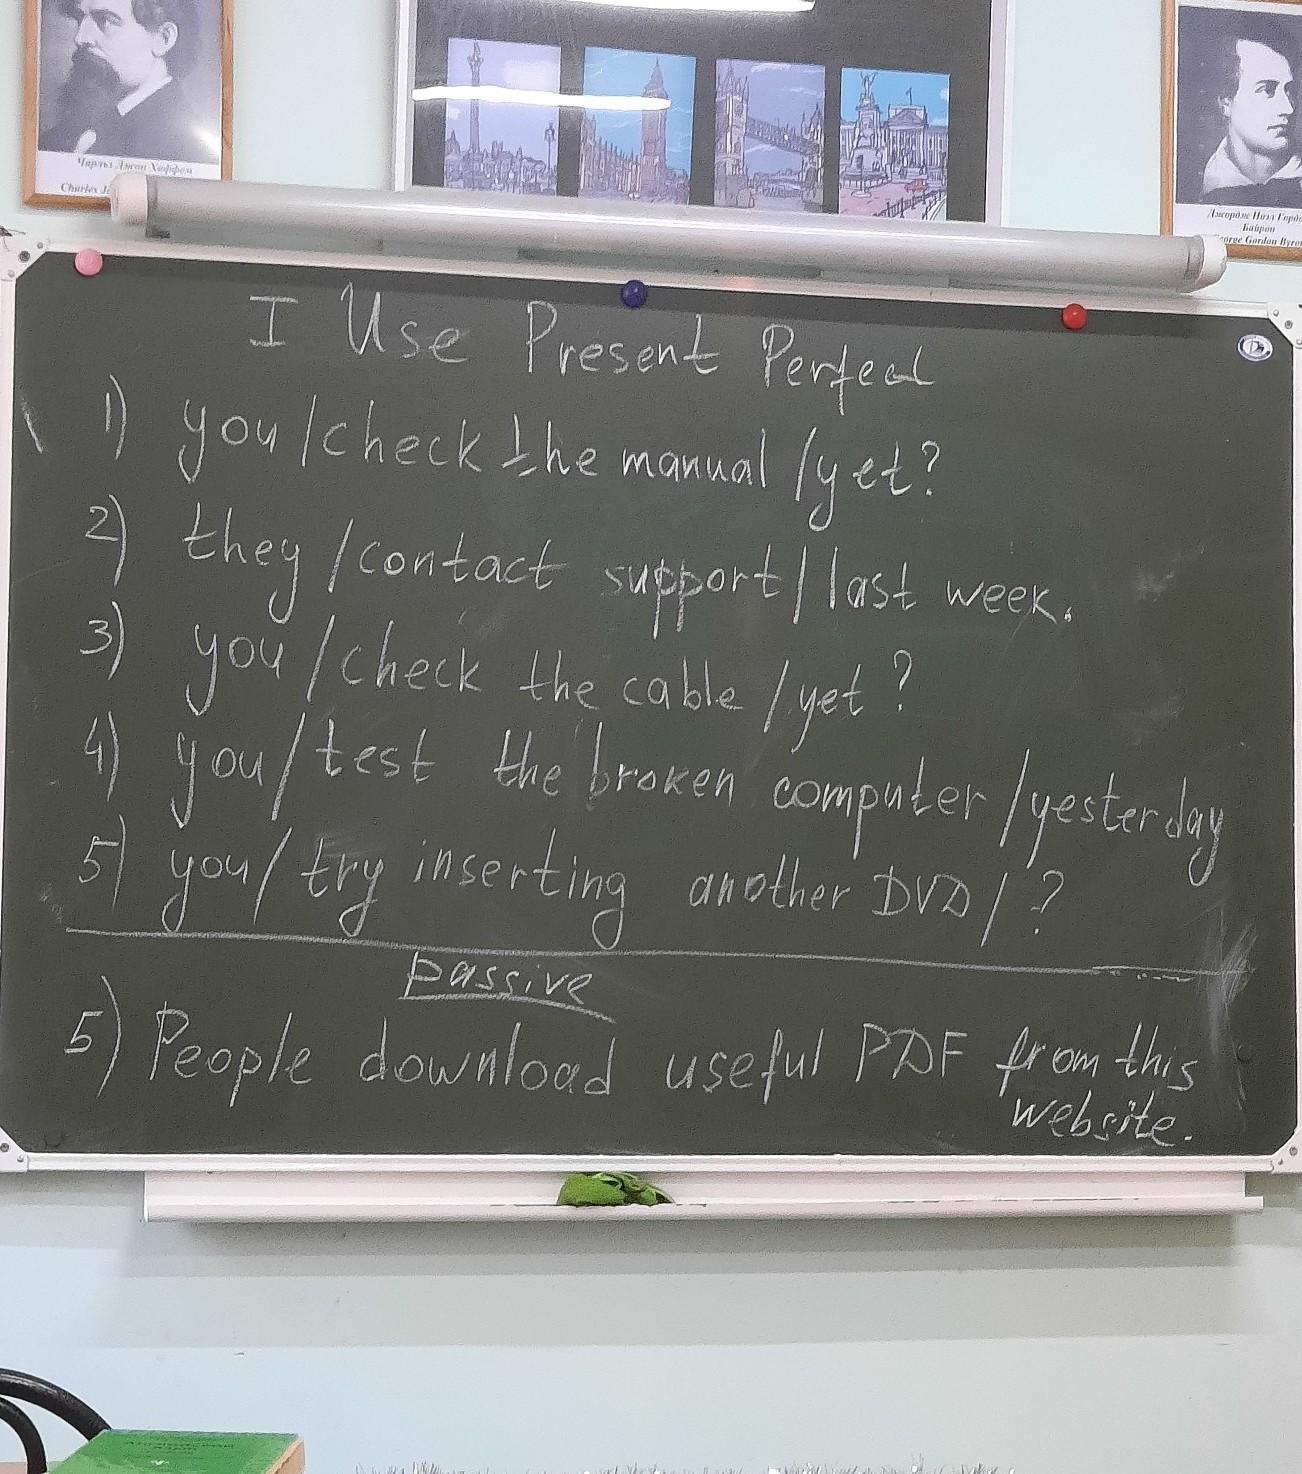 Чарльз Джон Хаффом
Charles J
Джордж Ноэл Гордо
Байрон
George Gordon Byron
I Use Present Perfect
1) you/check the manual/yet?
2) they/contact support/last week.
3) you/check the cable/yet?
4) you/test the broken computer/yesterday
5) you/try inserting another DVD/?
passive
5) People download useful PDF from this
website.